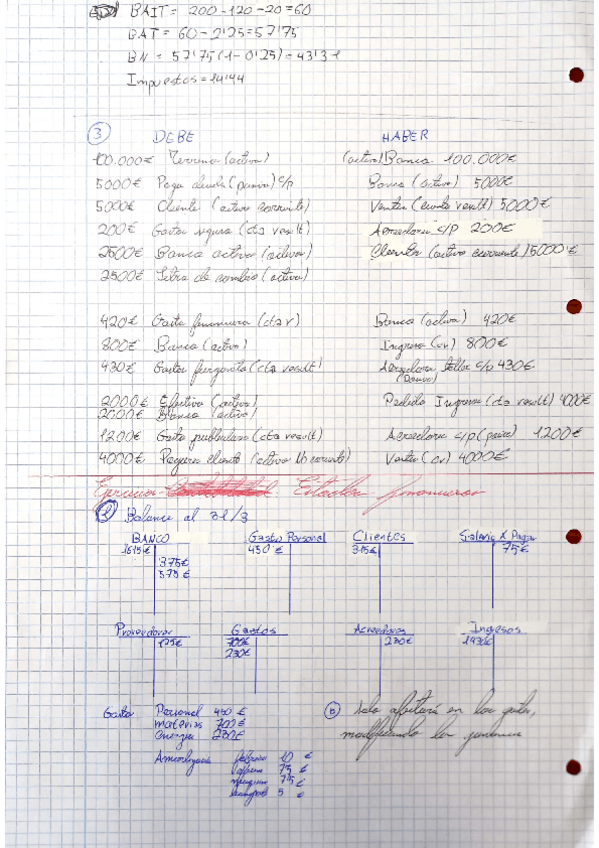 BAIT = 200-120-20=60
BAT = 60-2'25=57'75
BN = 57'75(1-0'25)=43'31
Impuestos=14'44
3 DEBE HABER
100.000€ Terreno (activo) (activo) Banco 100.000€
5000€ Paga deuda (pasivo) c/p Banco (activo) 5000€
5000€ Cliente (activo corriente) Ventas (cuenta result) 5000€
200€ Gastos (cta result) Acreedores c/p 200€
2500€ Banco activo Clientes (activo corriente) 5000€
2500€ Letra de cambio (activo)
420€ Gasto financiero (cta r) Banco (activo) 420€
800€ Banco (activo) Ingreso 800€
430€ Gastos furgoneta (cta result) Acreedores taller c/p 430€
(pasivo)
2000€ Efectivo (activo) Ingreso (cta result) 4000€
2000€ Banco (activo)
1200€ Gasto publicitario (cta result) Acreedores c/p (pasivo) 1200€
4000€ cliente (activo corriente) Ventas 4000€
Ejercicios Estados financieros
2 Balance al 31/3
BANCO Gasto Personal Clientes Salario X Pagar
1615€ 450€ 315€ 75€
375€
575€
Proveedores Gastos Acreedores Ingresos
175€ 700€ 230€ 1930€
230€
Gasto Personal 450€
materias 700€
energia 230€
febrero 10€
75€
75€
5€
b solo afectará en los gastos,
modificando las